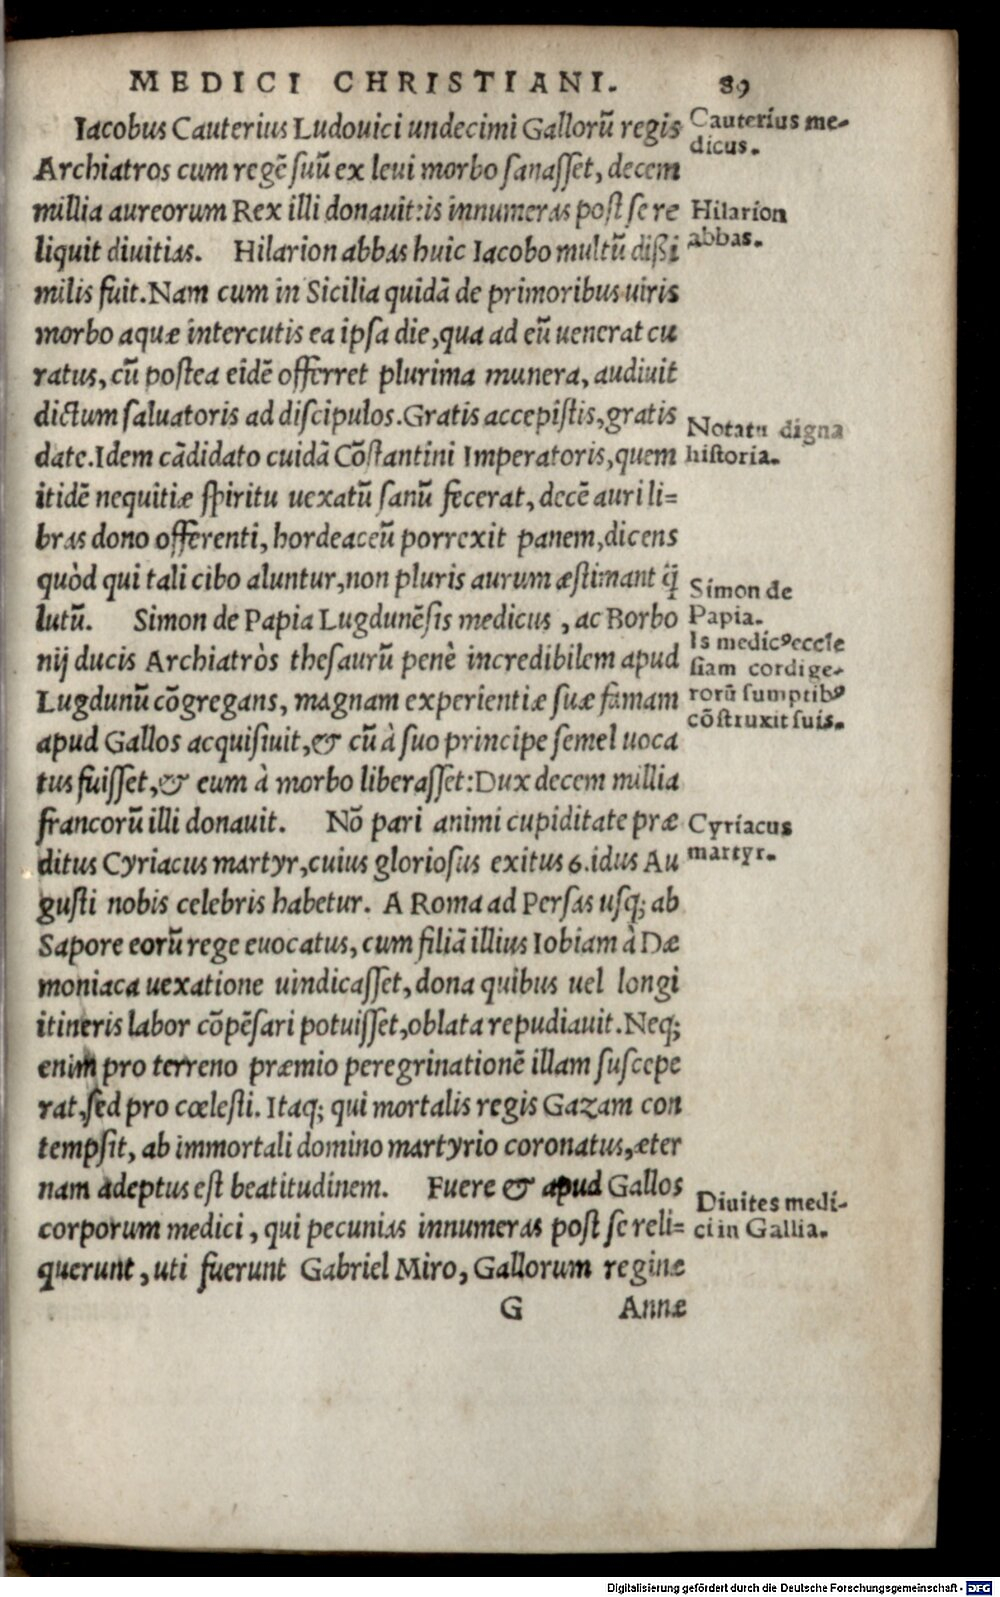 MEDICI CHRISTIANI. 89
Iacobus Cauterius Ludouici undecimi Gallorū regis
Archiatros cum regē suū ex leui morbo sanasset, decem
millia aureorum Rex illi donauit: is innumeras post se re
liquit diuitias. Hilarion abbas huic Iacobo multū dißi
milis fuit. Nam cum in Sicilia quidā de primoribus uiris
morbo aquæ intercutis ea ipsa die, qua ad eū uenerat cu
ratus, cū postea eidē offerret plurima munera, audiuit
dictum saluatoris ad discipulos. Gratis accepistis, gratis
date. Idem cādidato cuidā Cōstantini Imperatoris, quem
itidē nequitiæ spiritu uexatū sanū fecerat, decē auri li=
bras dono offerenti, hordeaceū porrexit panem, dicens
quòd qui tali cibo aluntur, non pluris aurum æstimant q̃
lutū. Simon de Papia Lugdunēsis medicus, ac Borbo
nij ducis Archiatròs thesaurū penè incredibilem apud
Lugdunū cōgregans, magnam experientiæ suæ famam
apud Gallos acquisiuit, & cū à suo principe semel uoca
tus fuisset, & eum à morbo liberasset: Dux decem millia
francorū illi donauit. Nō pari animi cupiditate præ
ditus Cyriacus martyr, cuius gloriosus exitus 6. idus Au
gusti nobis celebris habetur. A Roma ad Persas usq; ab
Sapore eorū rege euocatus, cum filiā illius Iobiam à Dæ
moniaca uexatione uindicasset, dona quibus uel longi
itineris labor cōpēsari potuisset, oblata repudiauit. Neq;
enim pro terreno præmio peregrinationē illam suscepe
rat, sed pro cœlesti. Itaq; qui mortalis regis Gazam con
tempsit, ab immortali domino martyrio coronatus, æter
nam adeptus est beatitudinem. Fuere & apud Gallos
corporum medici, qui pecunias innumeras post se reli=
querunt, uti fuerunt Gabriel Miro, Gallorum reginæ
G Annæ
Cauterius me-
dicus.
Hilarion
abbas.
Notatu digna
historia.
Simon de
Papia.
Is medicꝰ eccle
siam cordige-
rorū sumptibꝰ
cōstruxit suis.
Cyriacus
martyr.
Diuites medi-
ci in Gallia.
Digitalisierung gefördert durch die Deutsche Forschungsgemeinschaft - DFG